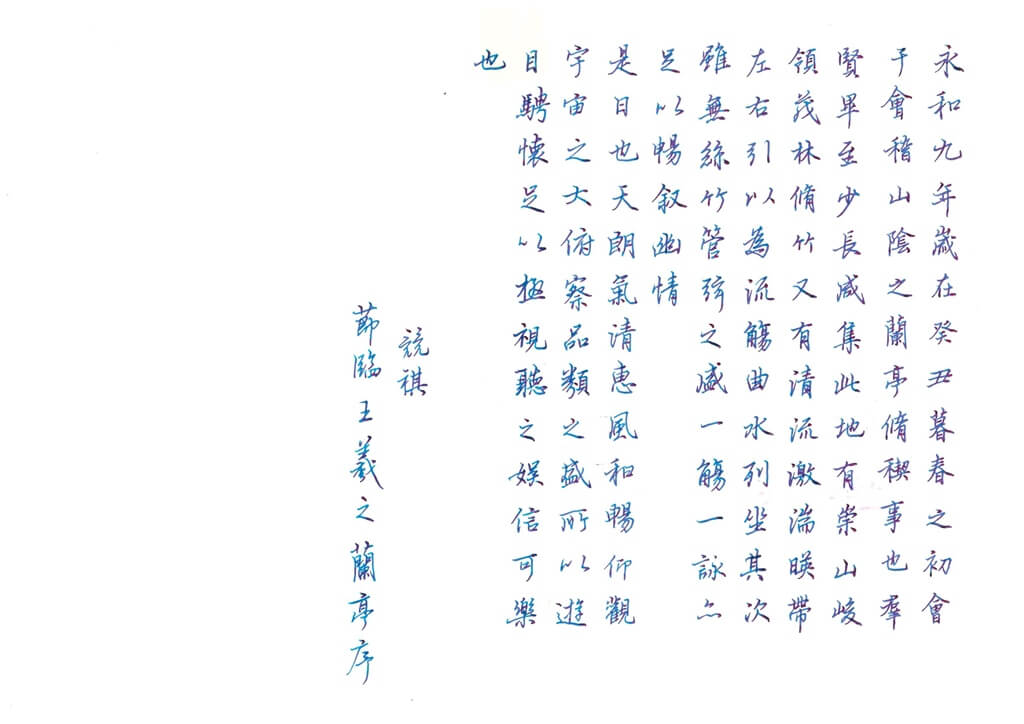 永和九年歲在癸丑暮春之初會
于會稽山陰之蘭亭脩稧事也羣
賢畢至少長咸集此地有崇山峻
領茂林脩竹又有清流激湍暎帶
左右引以為流觴曲水列坐其次
雖無絲竹管弦之盛一觴一詠亦
足以暢叙幽情
是日也天朗氣清惠風和暢仰觀
宇宙之大俯察品類之盛所以遊
目騁懷足以極視聽之娛信可樂
也
競祺
節臨王羲之蘭亭序